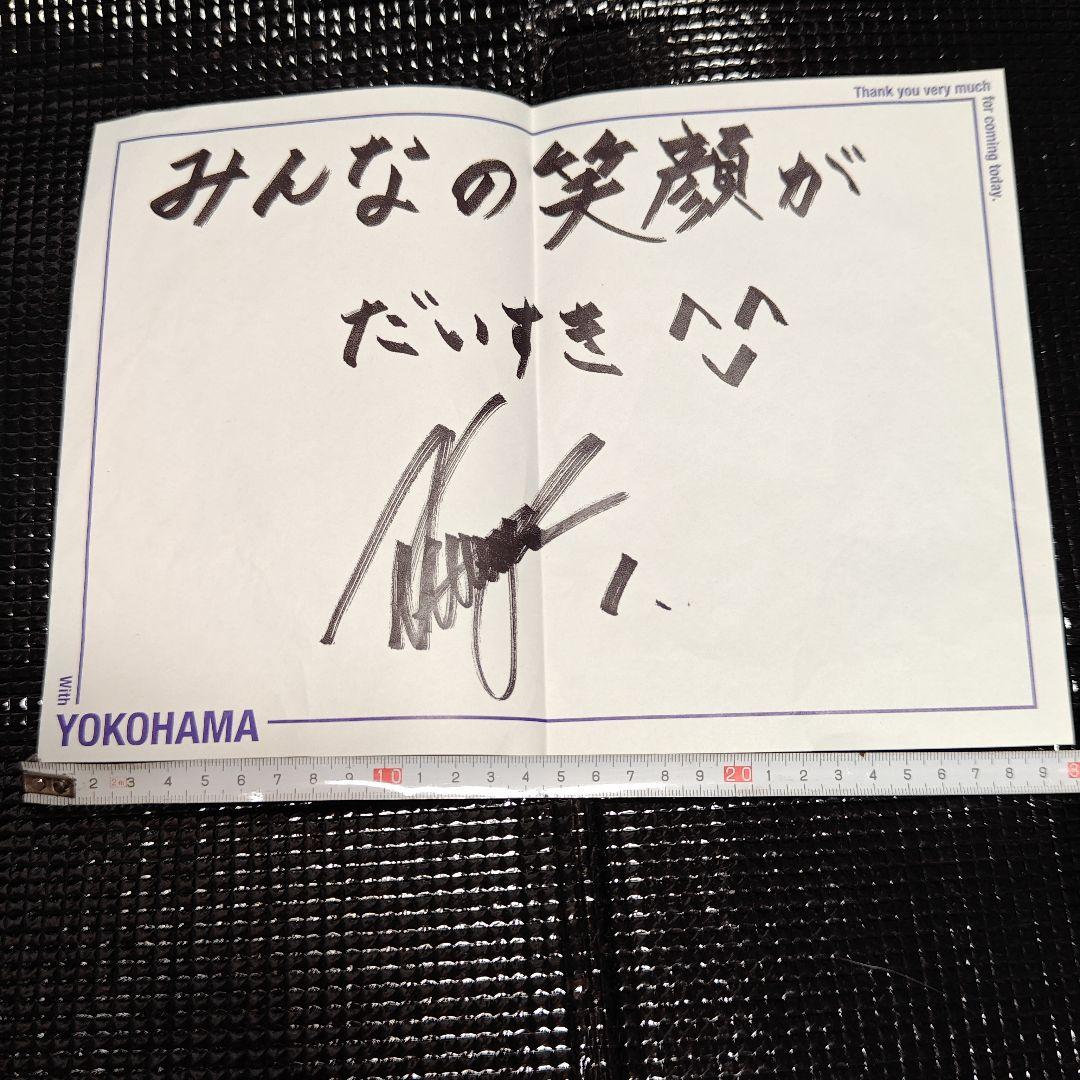 Thank you very much
for coming today.
みんなの笑顔が
だいすき ^^
1.
With
YOKOHAMA
2 2m 3 4 5 6 7 8 9 10 1 2 3 4 5 6 7 8 9 20 1 2 3 4 5 6 7 8 9 3